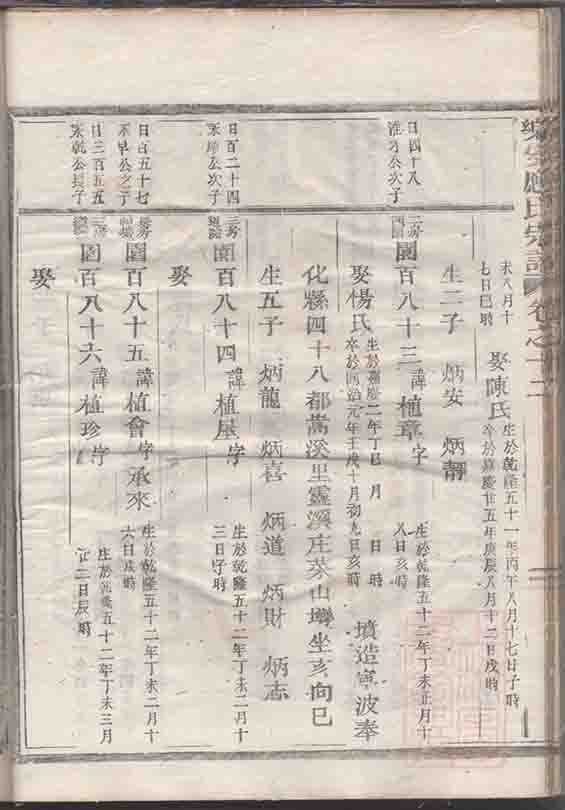 應氏宗譜 卷之十二
未八月十
七日巳時
娶陳氏
生於乾隆五十一年丙午八月十七日子時
卒於嘉慶廿五年庚辰八月十二日戌時
生二子 炳安 炳靜
日四十八
公次子
二房
園百八十三 諱植章 字
生於乾隆五十二年丁未正月十
八日亥時
娶楊氏
生於嘉慶二年丁巳 月 日 時
卒於同治元年壬戌十月初九日亥時
墳造寧波奉
化縣四十八都嵩溪里靈溪庄茶山塆坐亥向巳
生五子 炳龍 炳喜 炳道 炳財 炳志
日百二十四
公次子
三房
園百八十四 諱植屋 字
生於乾隆五十二年丁未二月十
三日子時
娶
日百五十七
公之子
園百八十五 諱植會 字承來
生於乾隆五十二年丁未二月十
六日戌時
日三百五五
公長子
園百八十六 諱植珍 字
生於乾隆五十二年丁未三月
廿二日辰時
娶